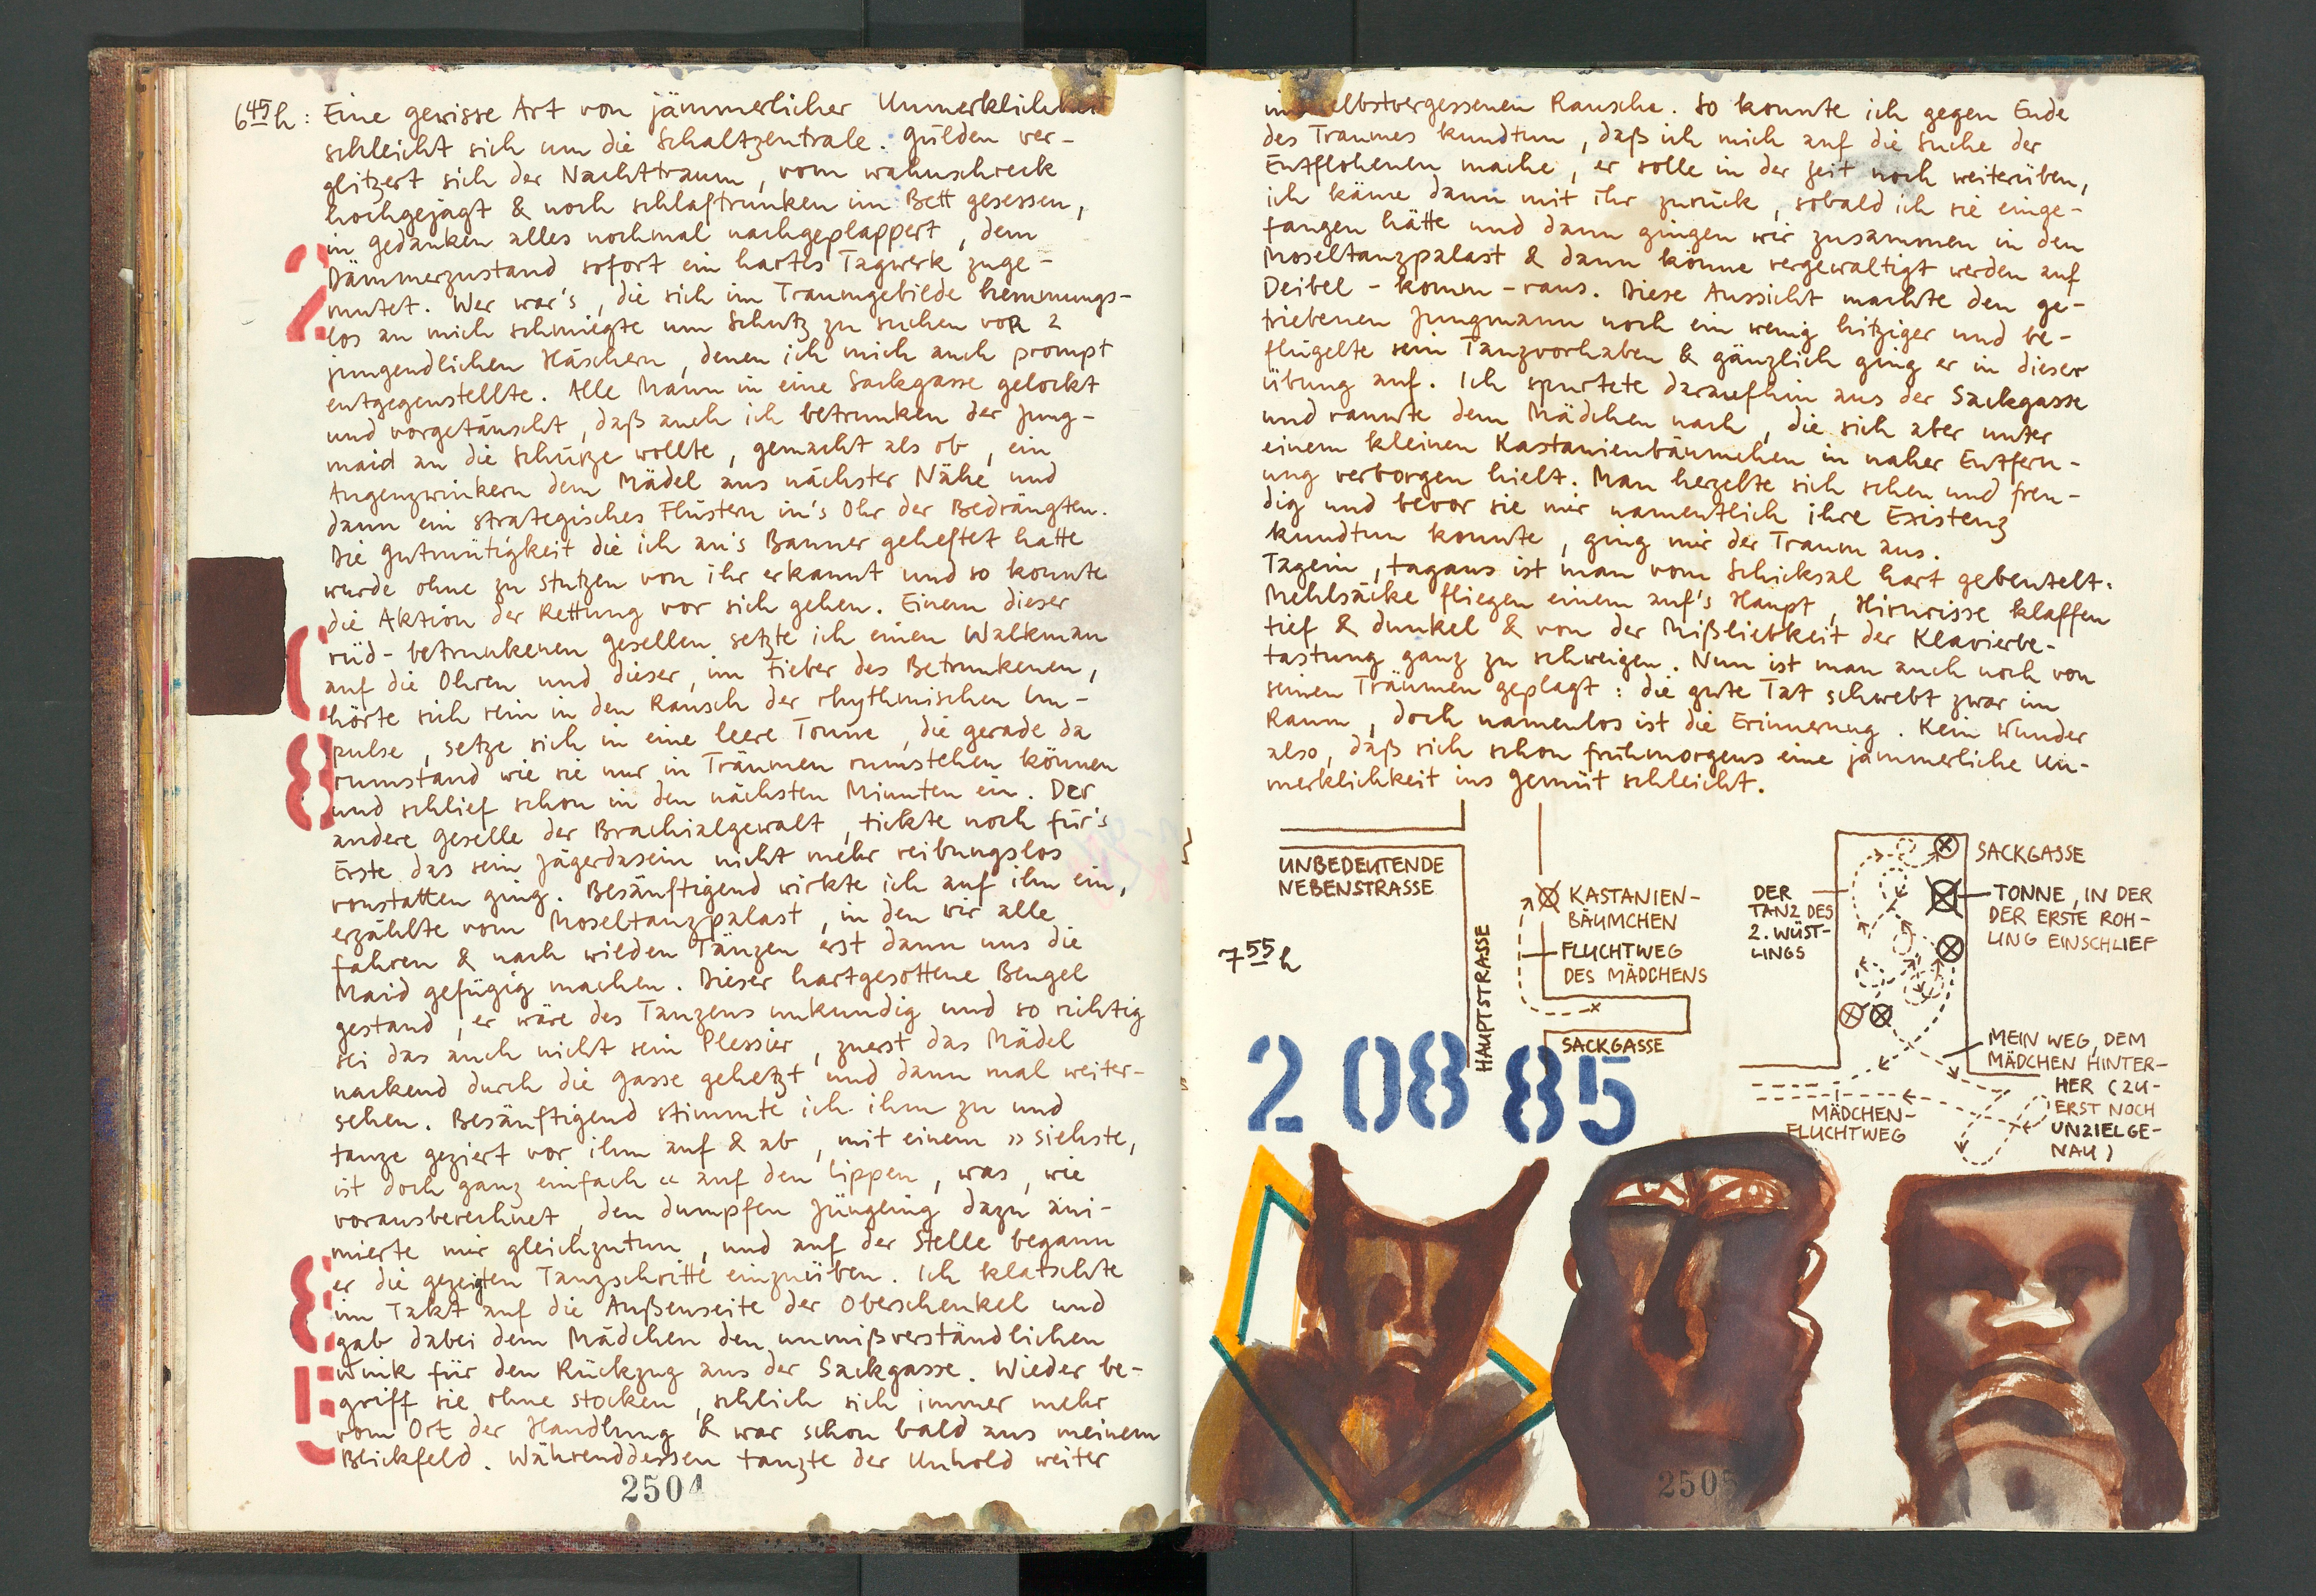 6 45 h: Eine gewisse Art von jämmerlicher Unmerklichkeit
schleicht sich um die Schaltzentrale. Gülden ver-
glitzert sich der Nachttraum, vom wahnschreck
hochgejagt & noch schlaftrunken im Bett gesessen,
in Gedanken alles nochmal nachgeplappert, dem
Dämmerzustand sofort ein hartes Tagwerk zuge-
mutet. Wer war's, die sich im Traumgebilde hemmungs-
los an mich schmiegte um Schutz zu suchen voR 2
jungendlichen Häschern, denen ich mich auch prompt
entgegenstellte. Alle Mann in eine Sackgasse gelockt
und vorgetäuscht, daß auch ich betrunken der Jung-
maid an die Schürze wollte, gemacht als ob, ein
Augenzwinkern dem Mädel aus nächster Nähe und
dann ein strategisches Flüstern in's Ohr der Bedrängten.
Die Gutmütigkeit die ich an's Banner geheftet hatte
wurde ohne zu stutzen von ihr erkannt und so konnte
die Aktion der Rettung vor sich gehen. Einem dieser
rüd-betrunkenen Gesellen setzte ich einen Walkman
auf die Ohren und dieser, im Fieber des Betrunkenen,
hörte sich rein in den Rausch der rhythmischen Im-
pulse, setze sich in eine leere Tonne, die gerade da
rumstand wie sie nur in Träumen rumstehen können
und schlief schon in den nächsten Minuten ein. Der
andere Geselle der Brachialgewalt, tickte noch für's
Erste das sein Jägerdasein nicht mehr reibungslos
vonstatten ging. Besänftigend wirkte ich auf ihn ein,
erzählte vom Moseltanzpalast, in den wir alle
fahren & nach wilden Tänzen erst dann uns die
Maid gefügig machen. Dieser hartgesottene Bengel
gestand, er wäre des Tanzens unkundig und so richtig
sei das auch nicht sein Plessier, zuerst das Mädel
nackend durch die Gasse gehetzt und dann mal weiter-
sehen. Besänftigend stimmte ich ihm zu und
tanze geziert vor ihm auf & ab, mit einem »siehste,
ist doch ganz einfach« auf den Lippen, was, wie
vorausberechnet, den dumpfen Jüngling dazu ani-
mierte mir gleichzutun, und auf der Stelle begann
er die gezeigten Tanzschritte einzuüben. Ich klatschte
im Takt auf die Außenseite der Oberschenkel und
gab dabei dem Mädchen den unmißverständlichen
Wink für den Rückzug aus der Sackgasse. Wieder be-
griff sie ohne stocken, schlich sich immer mehr
vom Ort der Handlung & war schon bald aus meinem
Blickfeld. Währenddessen tanzte der Unhold weiter
2504
im selbstvergessenen Rausche. So konnte ich gegen Ende
des Traumes kundtun, daß ich mich auf die Suche der
Entflohenen mache, er solle in der Zeit noch weiterüben,
ich käme dann mit ihr zurück, sobald ich sie einge-
fangen hätte und dann gingen wir zusammen in den
Moseltanzpalast & dann könne vergewaltigt werden auf
Deibel-komm-raus. Diese Aussicht machte den ge-
triebenen Jungmann noch ein wenig hitziger und be-
flügelte sein Tanzvorhaben & gänzlich ging er in dieser
Übung auf. Ich spurtete daraufhin aus der Sackgasse
und rannte dem Mädchen nach, die sich aber unter
einem kleinen Kastanienbäumchen in naher Entfern-
ung verborgen hielt. Man herzelte sich scheu und freu-
dig und bevor sie mir namentlich ihre Existenz
kundtun konnte, ging mir der Traum aus.
Tagein, tagaus ist man vom Schicksal hart gebeutelt.
Mehlsäcke fliegen einem auf's Haupt, Hirnrisse klaffen
tief & dunkel & von der Mißliebkeit der Klavierbe-
tastung ganz zu schweigen. Nun ist man auch noch von
seinen Träumen geplagt: die gute Tat schwebt zwar im
Raum, doch namenlos ist die Erinnerung. Kein Wunder
also, daß sich schon frühmorgens eine jämmerliche Un-
merklichkeit ins Gemüt schleicht.
UNBEDEUTENDE
NEBENSTRASSE
HAUPTSTRASSE
KASTANIEN-
BÄUMCHEN
FLUCHTWEG
DES MÄDCHENS
SACKGASSE
7 55 h
DER
TANZ DES
2. WÜST-
LINGS
SACKGASSE
TONNE, IN DER
DER ERSTE ROH-
LING EINSCHLIEF
MEIN WEG, DEM
MÄDCHEN HINTER-
HER (ZU-
ERST NOCH
UNZIELGE-
NAU)
MÄDCHEN-
FLUCHTWEG
2 08 85
2505